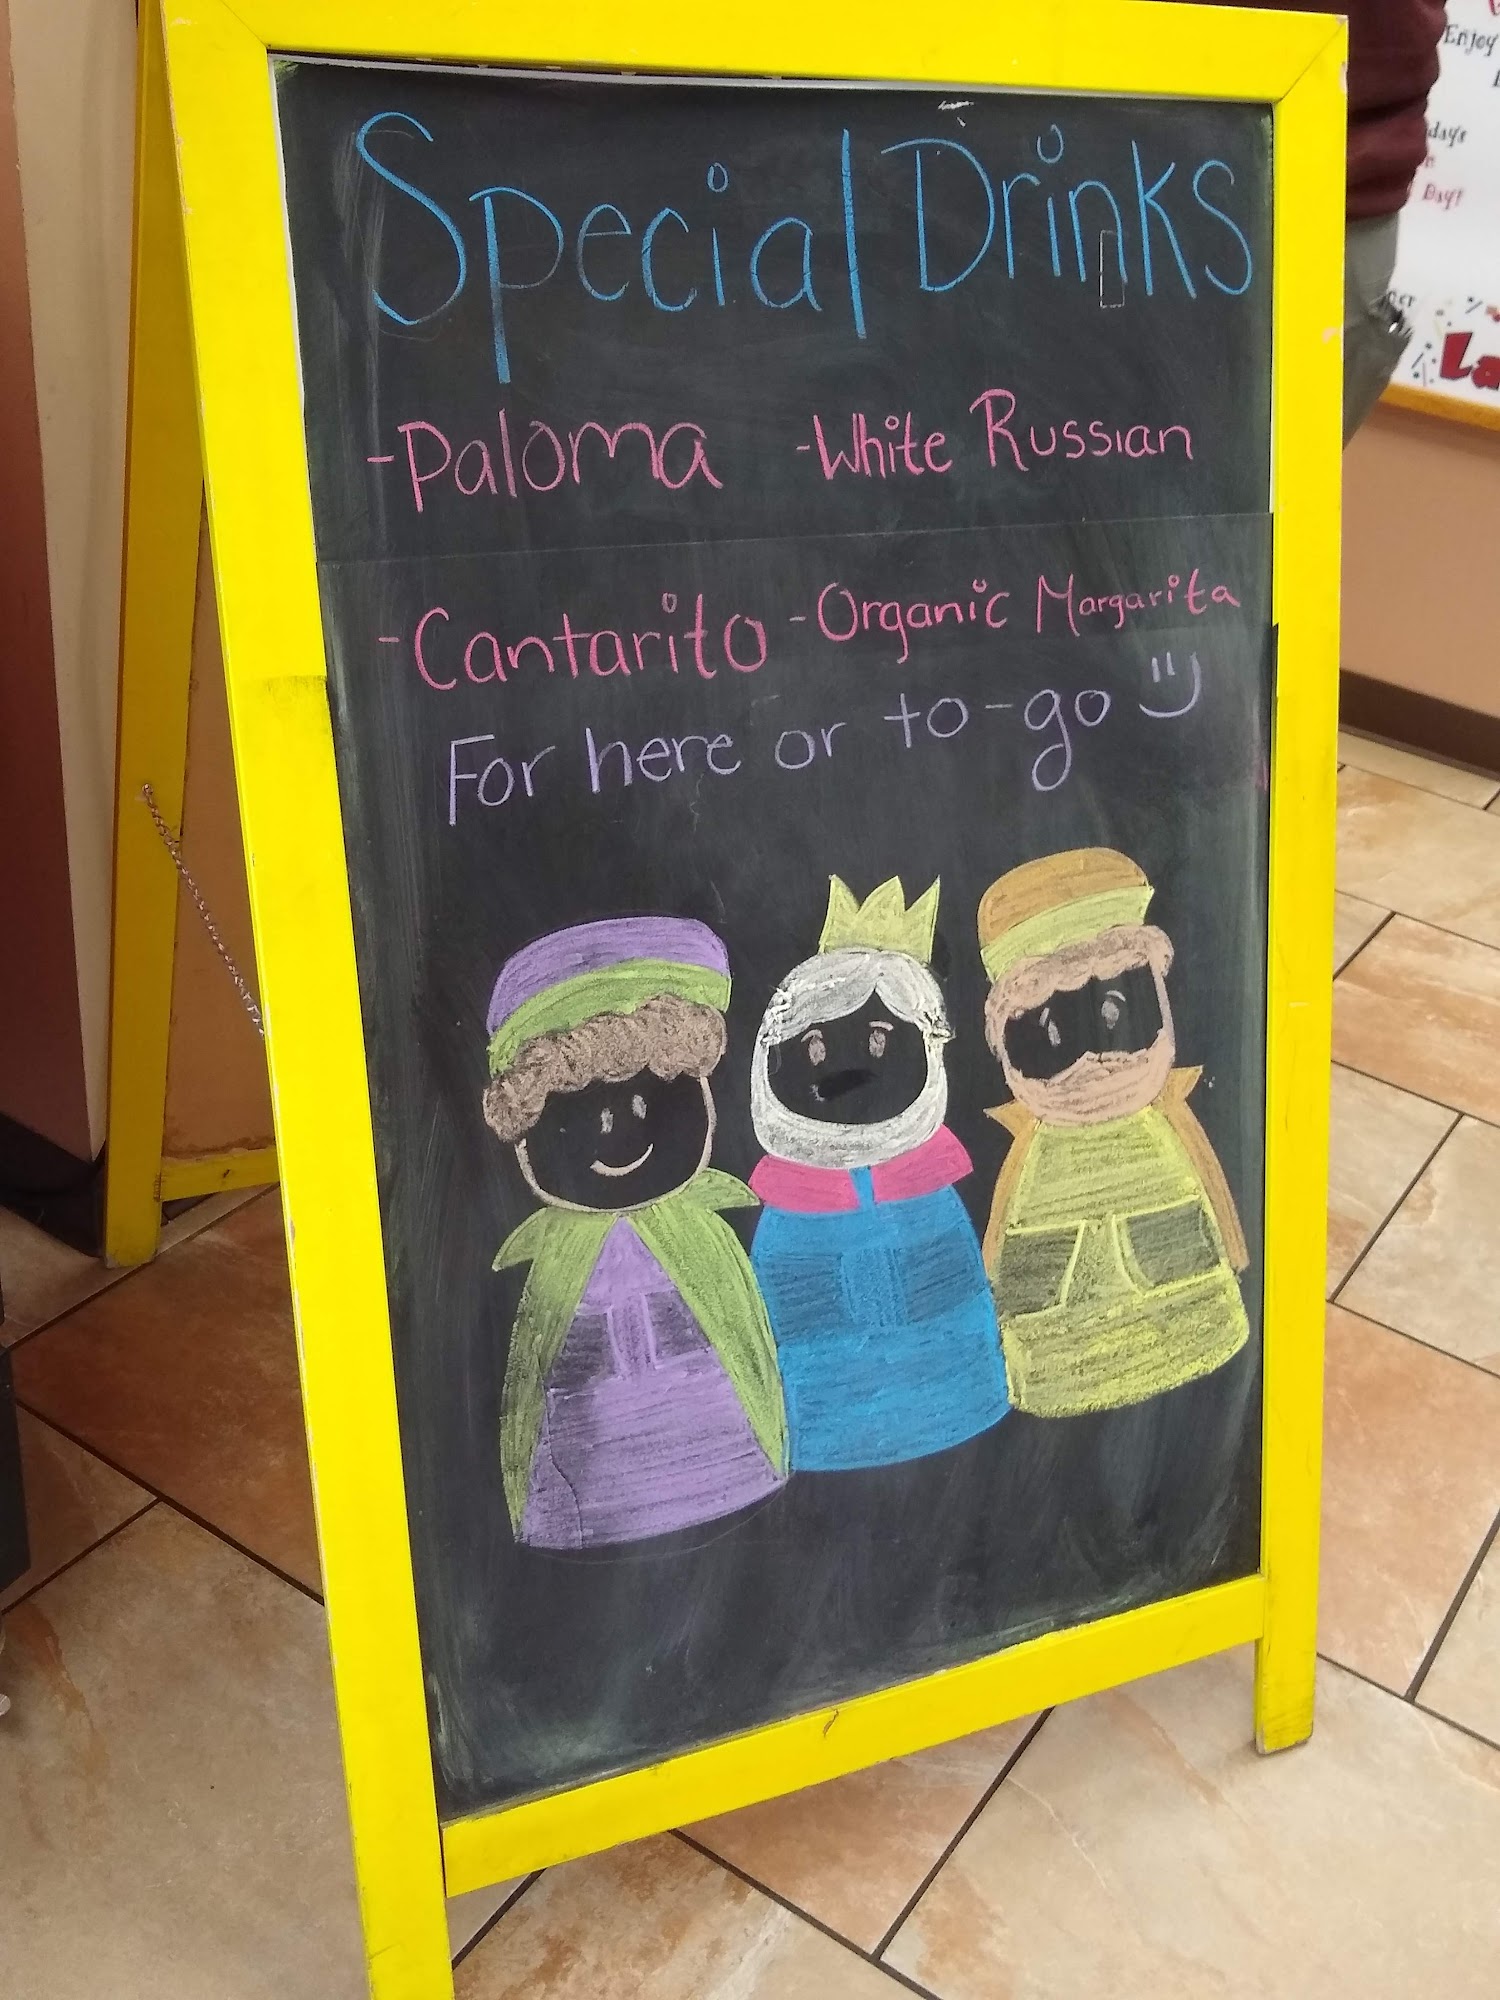 Special Drinks
-Paloma -White Russian
-Cantarito -Organic Margarita
For here or to-go
Enjoy
days
Day!
La